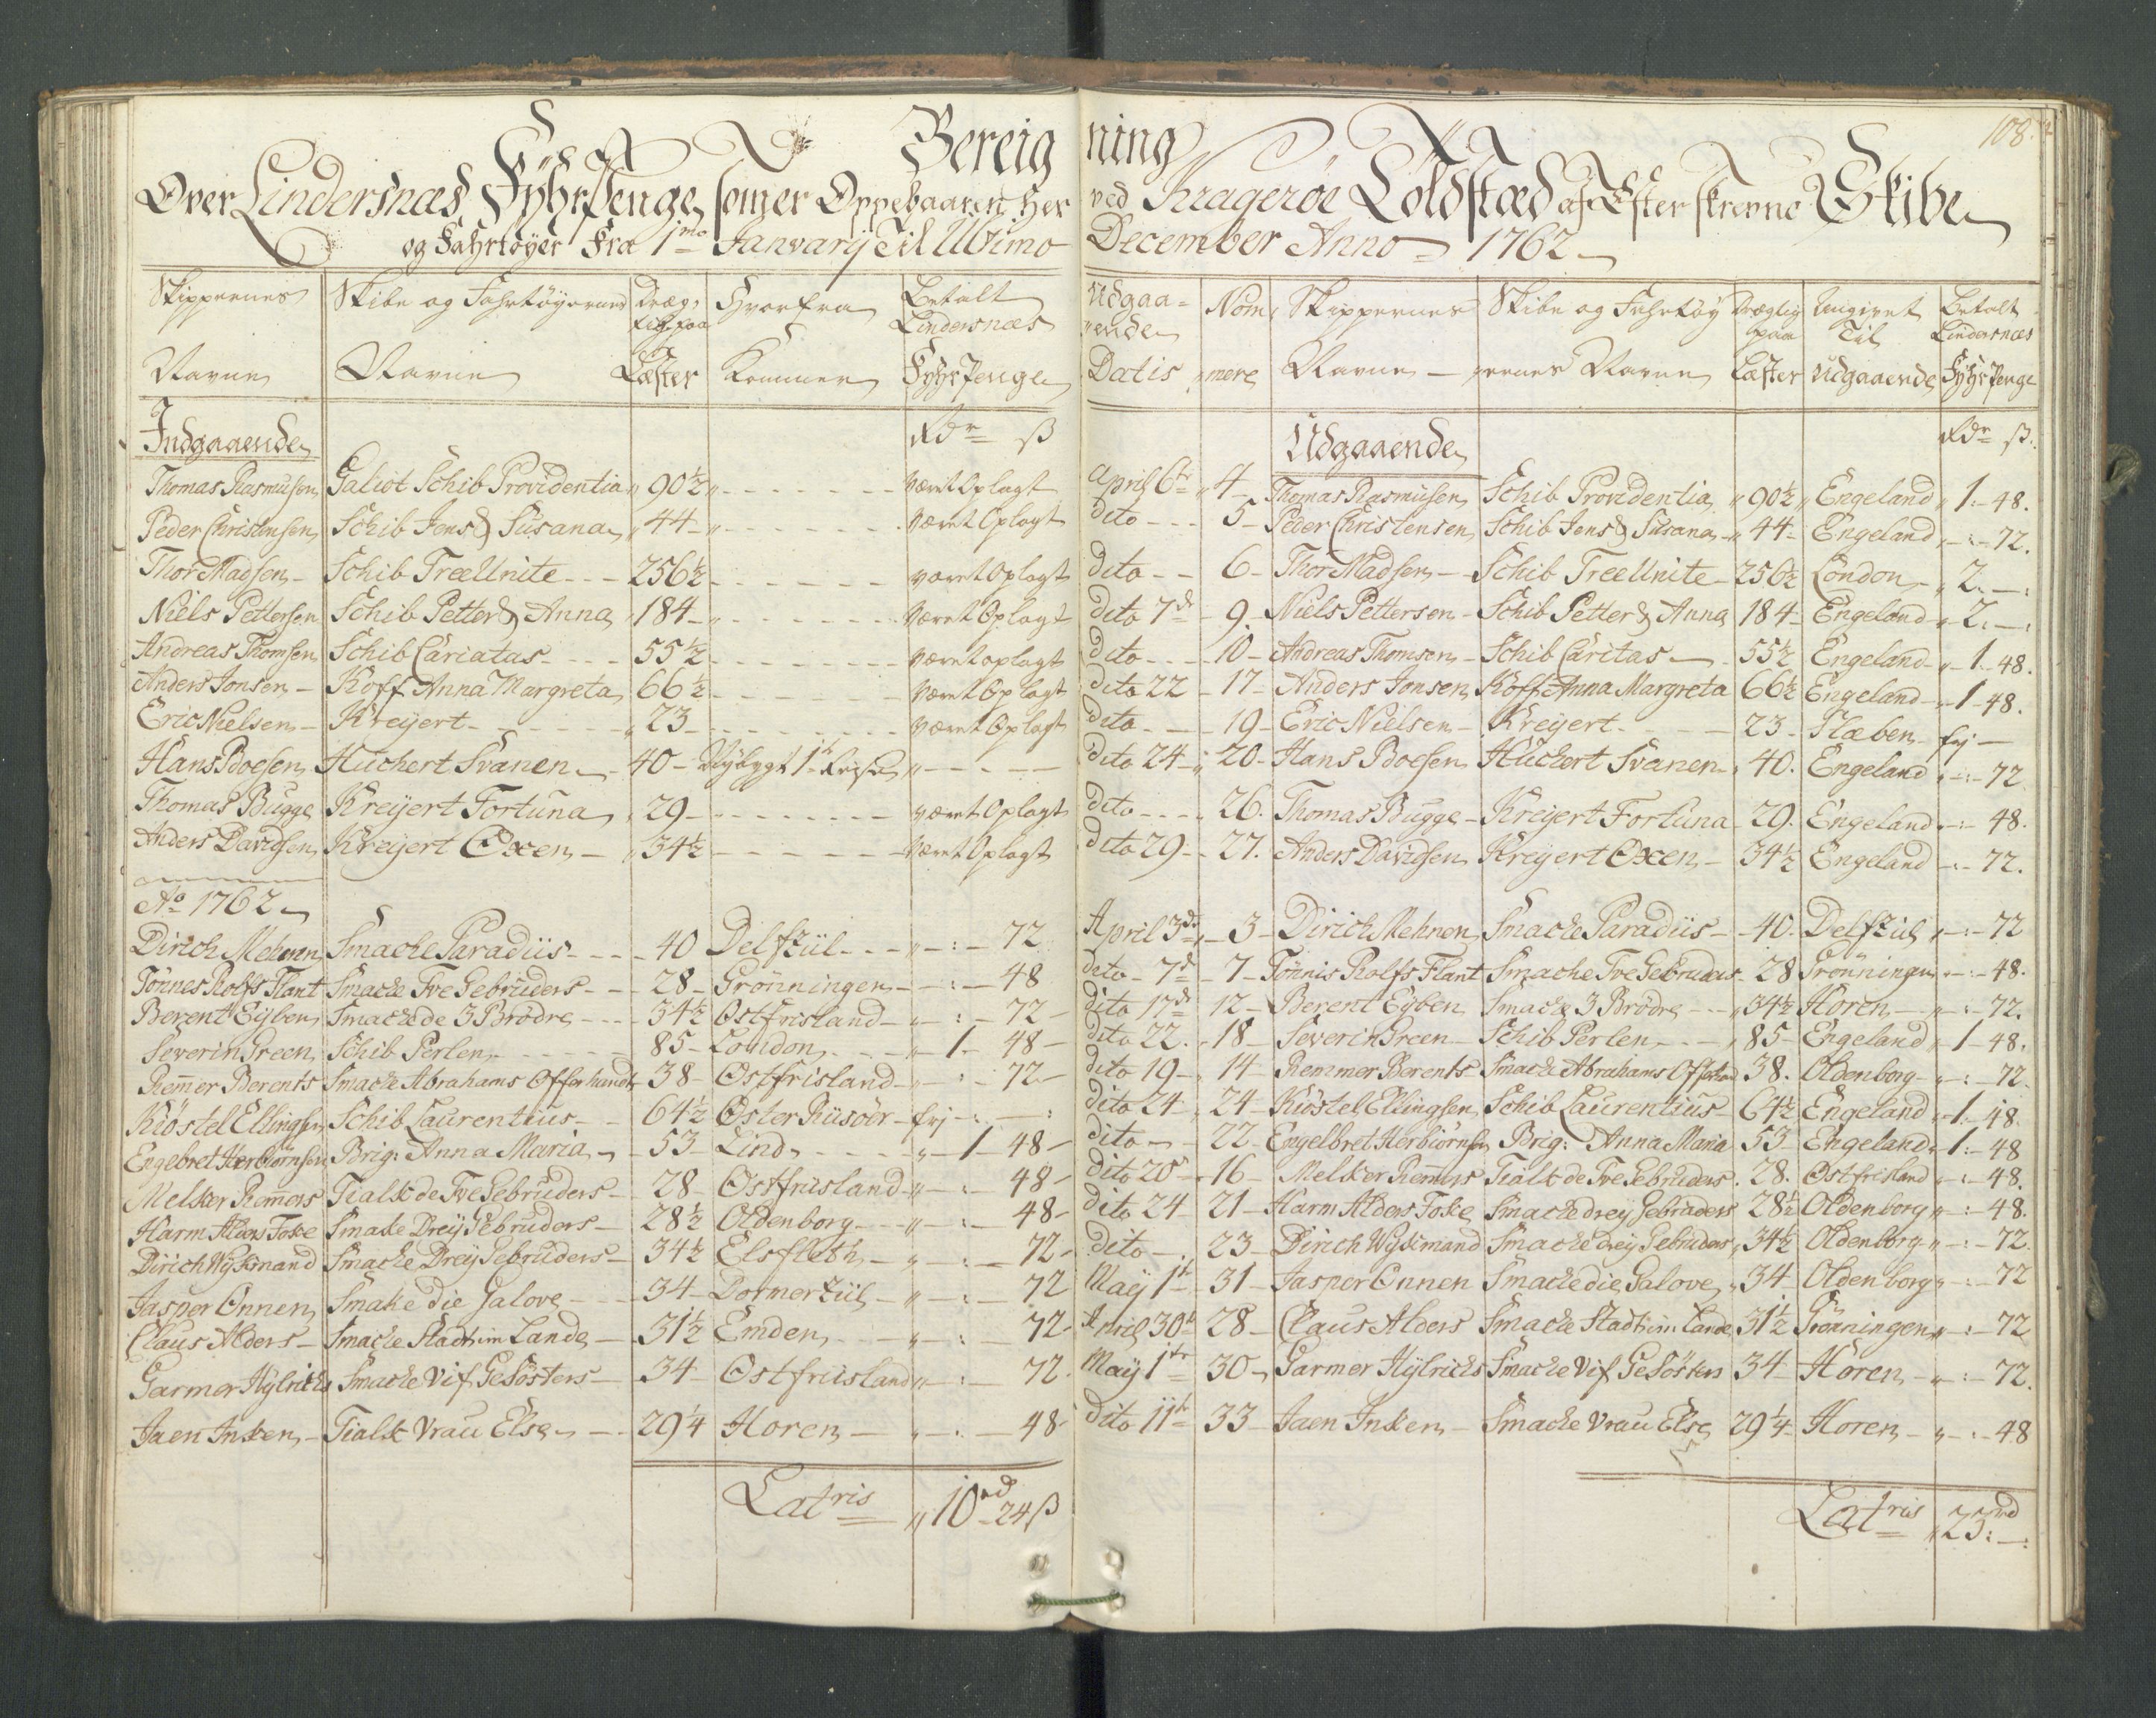 108.
Bereigning
Over Lindersnæs Fyhr Penge, som er Oppebaaren her ved Kragerøe Toldstæd af Efterskrevne Skibe
og Fahrtøyer Fra 1me Janvarij Til Ultimo December Anno 1762
Skippernes Navne | Skibe og Fahrtøyernes Navne | Dræg- tig paa Læster | Hvorfra Kommen | Betalt Lindersnæs Fyhr Penge
Udgaaende Datis | Nom mere | Skippernes Navne | Skibe og Fahrtøyernes Navne | Drægtig paa Læster | Angivet Til Udgaaende | Betalt Lindersnæs Fyhr Penge
Indgaaende Rdr ß
Udgaaende Rdr ß.
Thomas Rasmusen Galiot Schib Providentia 90½ været Oplagt
April 6t 4 Thomas Rasmusen Schib Providentia 90½ Engeland 1.48.
Peder Christensen Schib Jens & Susana 44 været Oplagt
dito 5 Peder Christensen Schib Jens & Susana 44 Engeland 72.
Thor Madsen Schib Tree Unite 256½ været Oplagt
dito 6 Thor Madsen Schib Tree Unite 256½ London 2.
Niels Pettersen Schib Petter & Anna 184 været Oplagt
dito 7de 9 Niels Pettersen Schib Petter & Anna 184 Engeland 2.
Andreas Thomsen Schib Cariatas 55½ været oplagt
dito 10 Andreas Thomsen Schib Caritas 55½ Engeland 1.48.
Anders Jonsen Koff Anna Margreta 66½ været Oplagt
dito 22 17 Anders Jonsen Koff Anna Margreta 66½ Engeland 1.48.
Eric Nielsen Kreijert 23 været Oplagt
dito 19 Eric Nielsen Kreijert 23 Flæben frj
Hans Boesen Huckert Svanen 40 Nybygt 1te Reyse
dito 24 20 Hans Boesen Huckert Svanen 40. Engeland 72
Thomas Bugge Kreijert Fortuna 29 været Oplagt
dito 26. Thomas Bugge Kreijert Fortuna 29. Engeland 48.
Anders Davidsen Kreijert Oxen 34½ været Oplagt
dito 29 27. Anders Davidsen Kreijert Oxen 34½ Engeland 72.
Ao 1762
Dirich Mehnen Smacke Paradiis 40 Delfzül 72
April 3de 3 Dirich Mehnen Smacke Paradiis 40. Delfzül 72
Tönnes Rolfs Flant Smacke Tve Gebrüders 28 Grönningen 48
dito 7d 7 Tönnis Rolfs Flant Smacke Tve Gebruders 28 Grönningen 48.
Berent Eyben Smacke de 3 Brödre 34½ Ostfrisland 72
dito 17de 12 Berent Eyben Smacke 3 Brödre 34½ Horen 72.
Severin Green Schib Perlen 85 London 1 48
dito 22. 18 Severin Green Schib Perlen 85 Engeland 1 48.
Remmer Berents Smacke Abrahams Offerhande 38 Ostfrisland 72
dito 19 14 Remmer Berents Smacke Abrahams Offerhand 38. Oldenborg 72.
Kiöstel Ellingsen Schib Laurentius 64½ Öster Riisöer frj
dito 24 24 Kiöstel Ellingsen Schib Laurentius 64½ Engeland 1.48.
Engebret Herbiörnsen Brig: Anna Maria 53 Lind 1 48
dito 22 Engelbret Herbiörnsen Brig: Anna Maria 53 Engeland 1 48
Melker Remers Tialk de Tve Gebruders 28 Ostfriisland 48
dito 20 16 Melker Remers Tialk de Tve Gebruders. 28. Ostfrisland 48.
Harm Alders Foke Smacke Dreij Gebruders 28½ Oldenborg 48
dito 24 21 Harm Alders Foke Smacke dreij Gebruders 28½ Oldenborg 48.
Dirich Wyckmand Smacke Dreij Gebruders 34½ Elsfleth 72
dito 23 Dirich Wyckmand Smacke dreij Gebruders 34½ Oldenborg 72.
Jasper Onnen Smake die Galove 34 Dormerzül 72
Maij 1t 31 Jasper Onnen Smacke die Galove 34 Oldenborg 72
Claus Alders Smacke Stadt im Lande 31½ Emden 72
April 30t 28 Claus Alders Smacke Stadt im Lande 31½ Grönningen 72
Garmer Hijlrichs Smacke Vif Gesösters 34 Ostfriisland 72.
Maij 1te 30 Garmer Hylrichs Smacke Vif Gesösters 34 Horen 72.
Jaen Insken Tialk Vrau Else 29¼ Horen 48
dito 11t 33 Jaen Insken Smacke Vrau Else 29¼ Horen 48
Latris 10rd 24ß
Latris 23rd